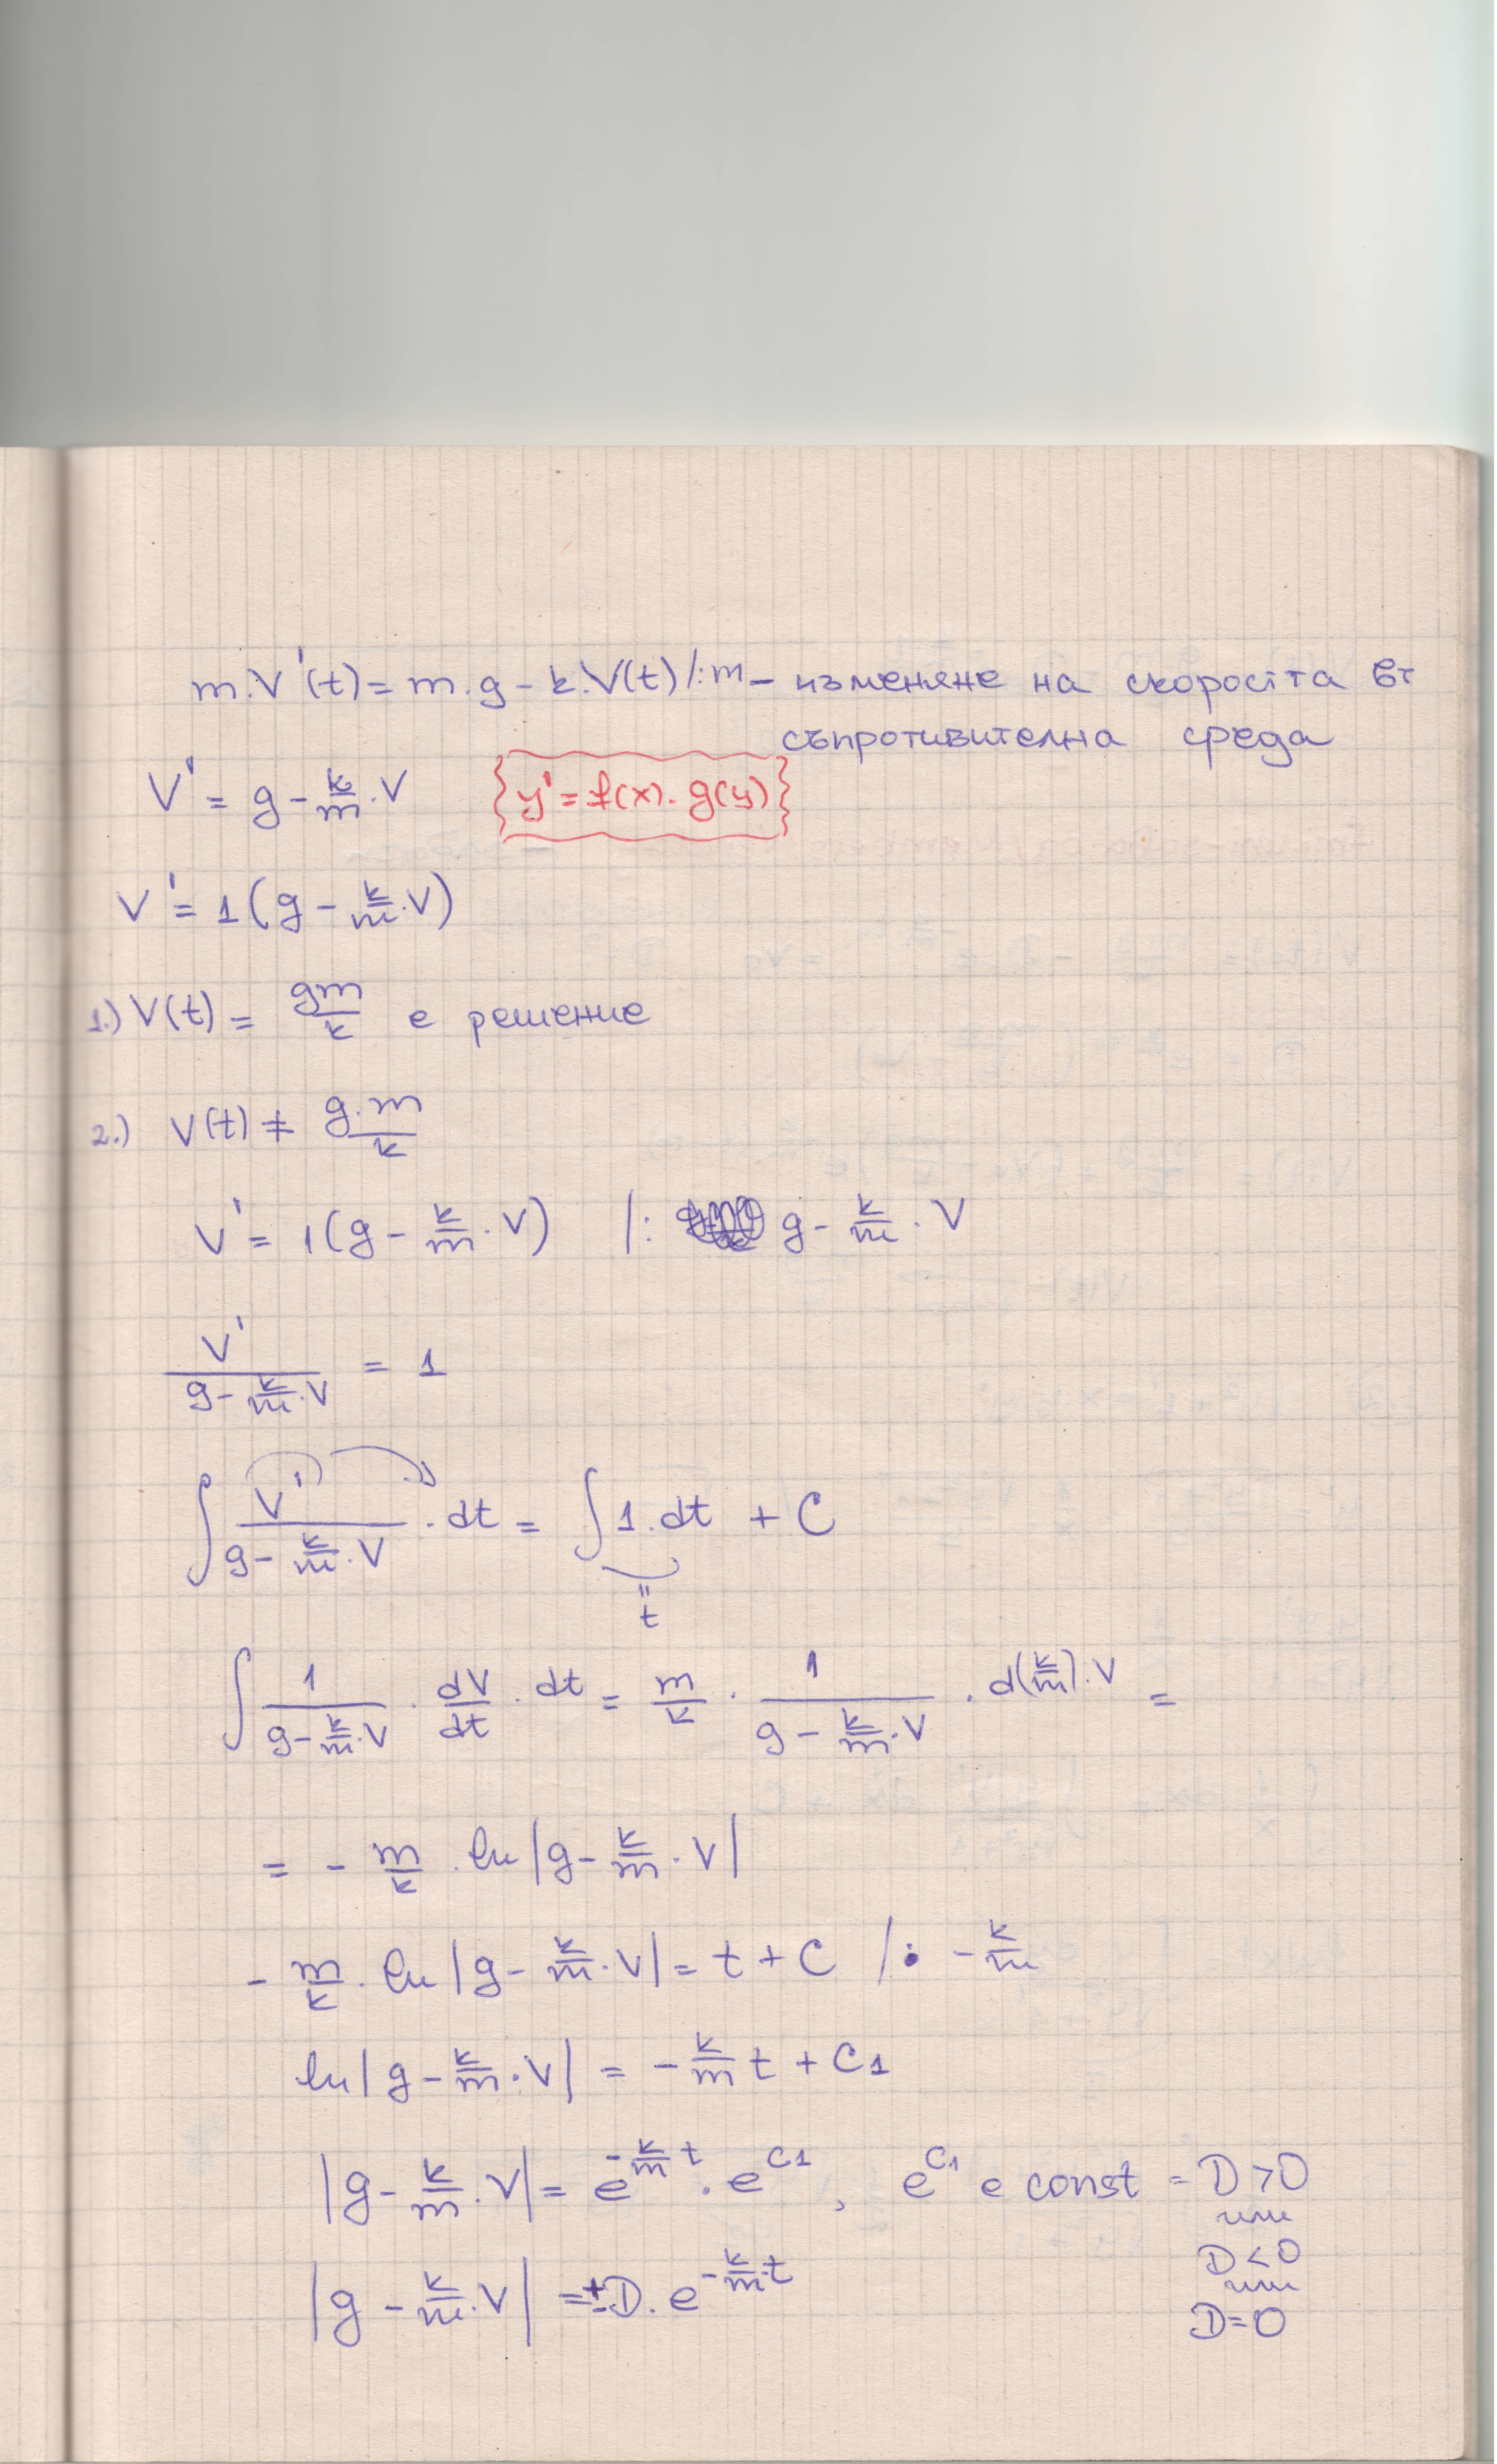 m.V'(t) = m.g - k.V(t) /:m - изменяне на скоростта в
съпротивителна среда
V' = g - k/m . V {y' = f(x). g(y)}
V' = 1(g - k/m . V)
1.) V(t) = gm/k е решение
2.) V(t) ≠ g.m/k
V' = 1(g - k/m . V) /: g - k/m . V
V'/(g - k/m . V) = 1
∫ V'/(g - k/m . V) . dt = ∫ 1. dt + C
= t
∫ 1/(g - k/m . V) . dV/dt . dt = m/k . 1/(g - k/m . V) . d(k/m) . V =
= - m/k . ln |g - k/m . V|
- m/k . ln |g - k/m . V| = t + C /: - k/m
ln |g - k/m . V| = - k/m t + C1
|g - k/m . V| = e^(- k/m t) . e^C1 , e^C1 е const = D > 0
или
D < 0
или
|g - k/m . V| = ±D. e^(- k/m . t)
D = 0